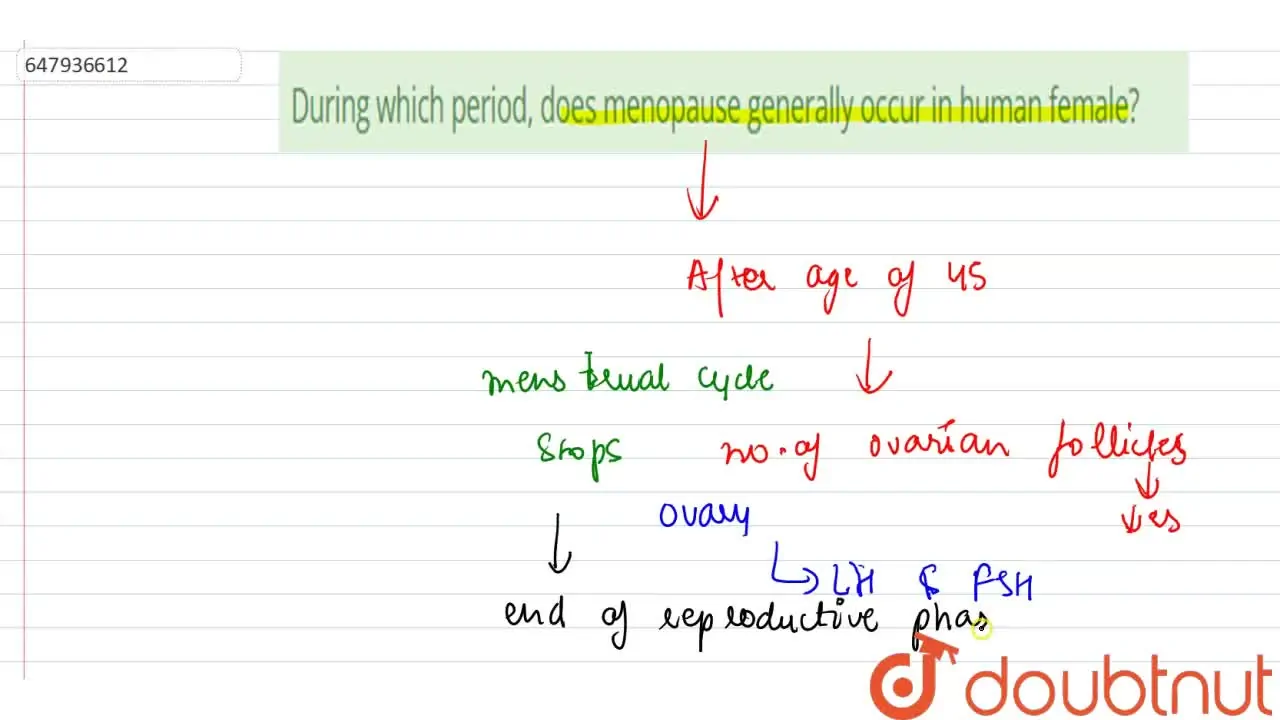 647936612
During which period, does menopause generally occur in human female?
After age of 45
menstrual cycle
stops
no. of ovarian follicles
↓es
ovary
LH & FSH
end of reproductive phas
doubtnut